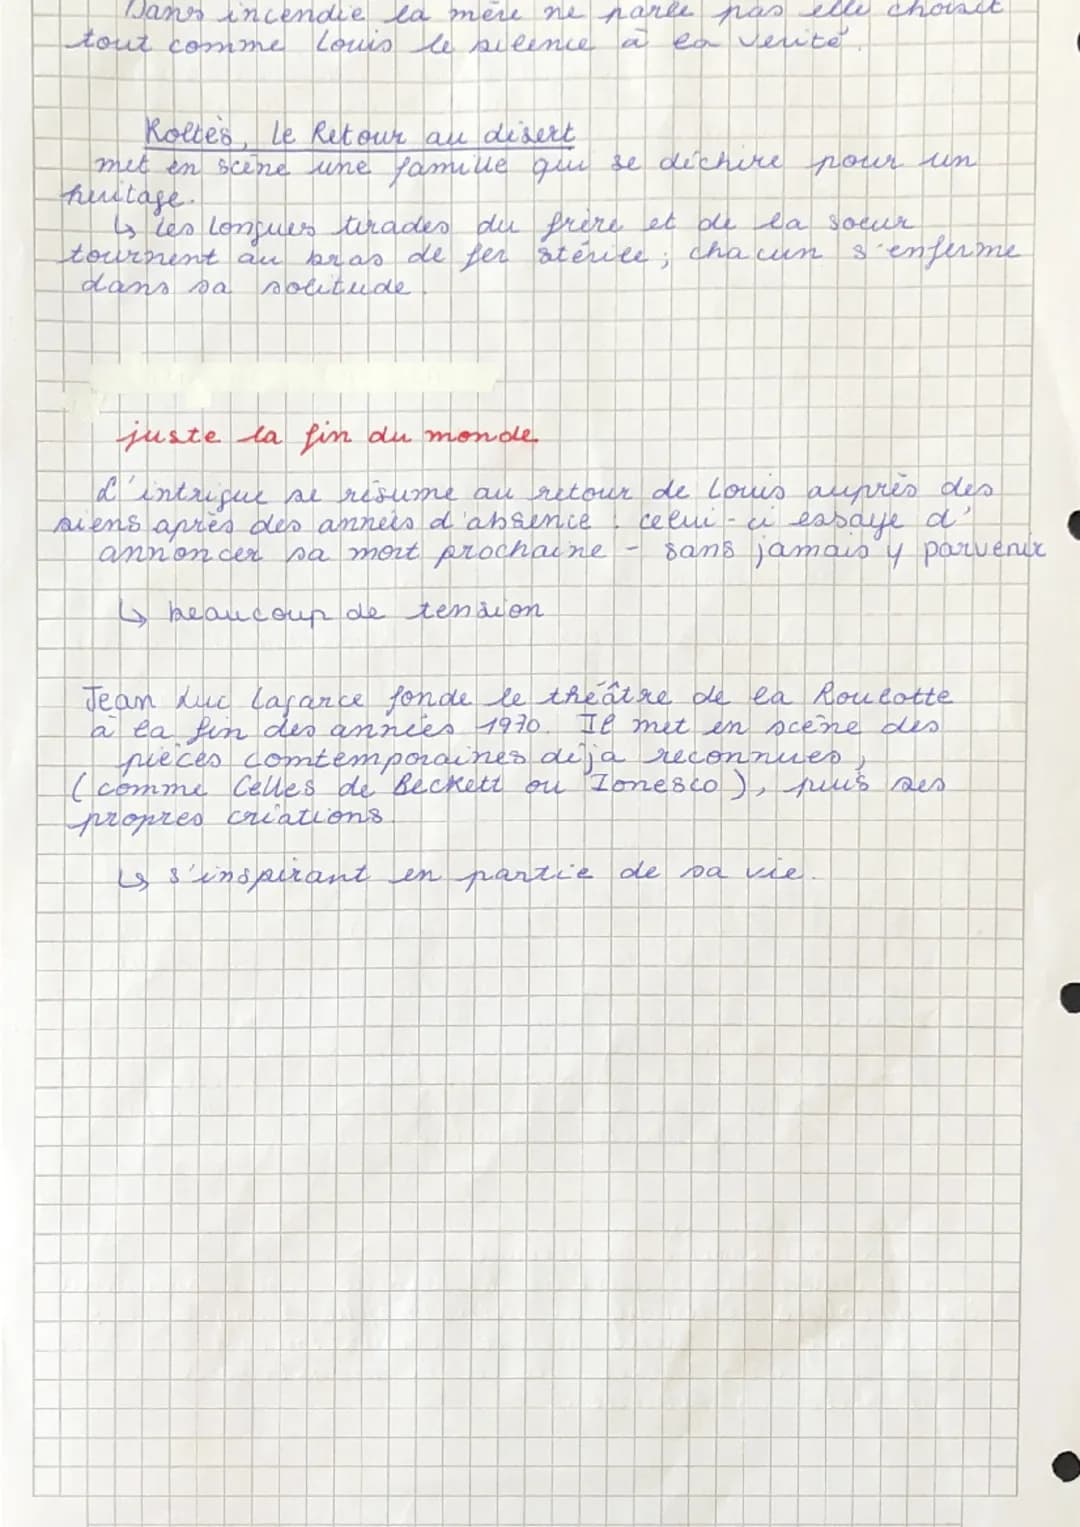 Dans incendie la mère ne parle pas elle choisit
tout comme Louis le silence à la verité.
Koltès, Le Retour au désert
met en scène une famille qui se déchire pour un
heritage.
↳ les longues tirades du frère et de la soeur
tournent au bras de fer stérile ; chacun s'enferme
dans sa solitude.
juste la fin du monde
L'intrigue se résume au retour de Louis auprès des
siens après des années d'absence : celui-ci essaye d'
annoncer sa mort prochaine - sans jamais y parvenir
↳ beaucoup de tension
Jean Luc Lagarce fonde le théâtre de la Roulotte
à la fin des années 1970. Il met en scène des
pièces comtemporaines déjà reconnues,
(comme Celles de Beckett ou Ionesco), puis ses
propres créations.
↳ s'inspirant en partie de sa vie.